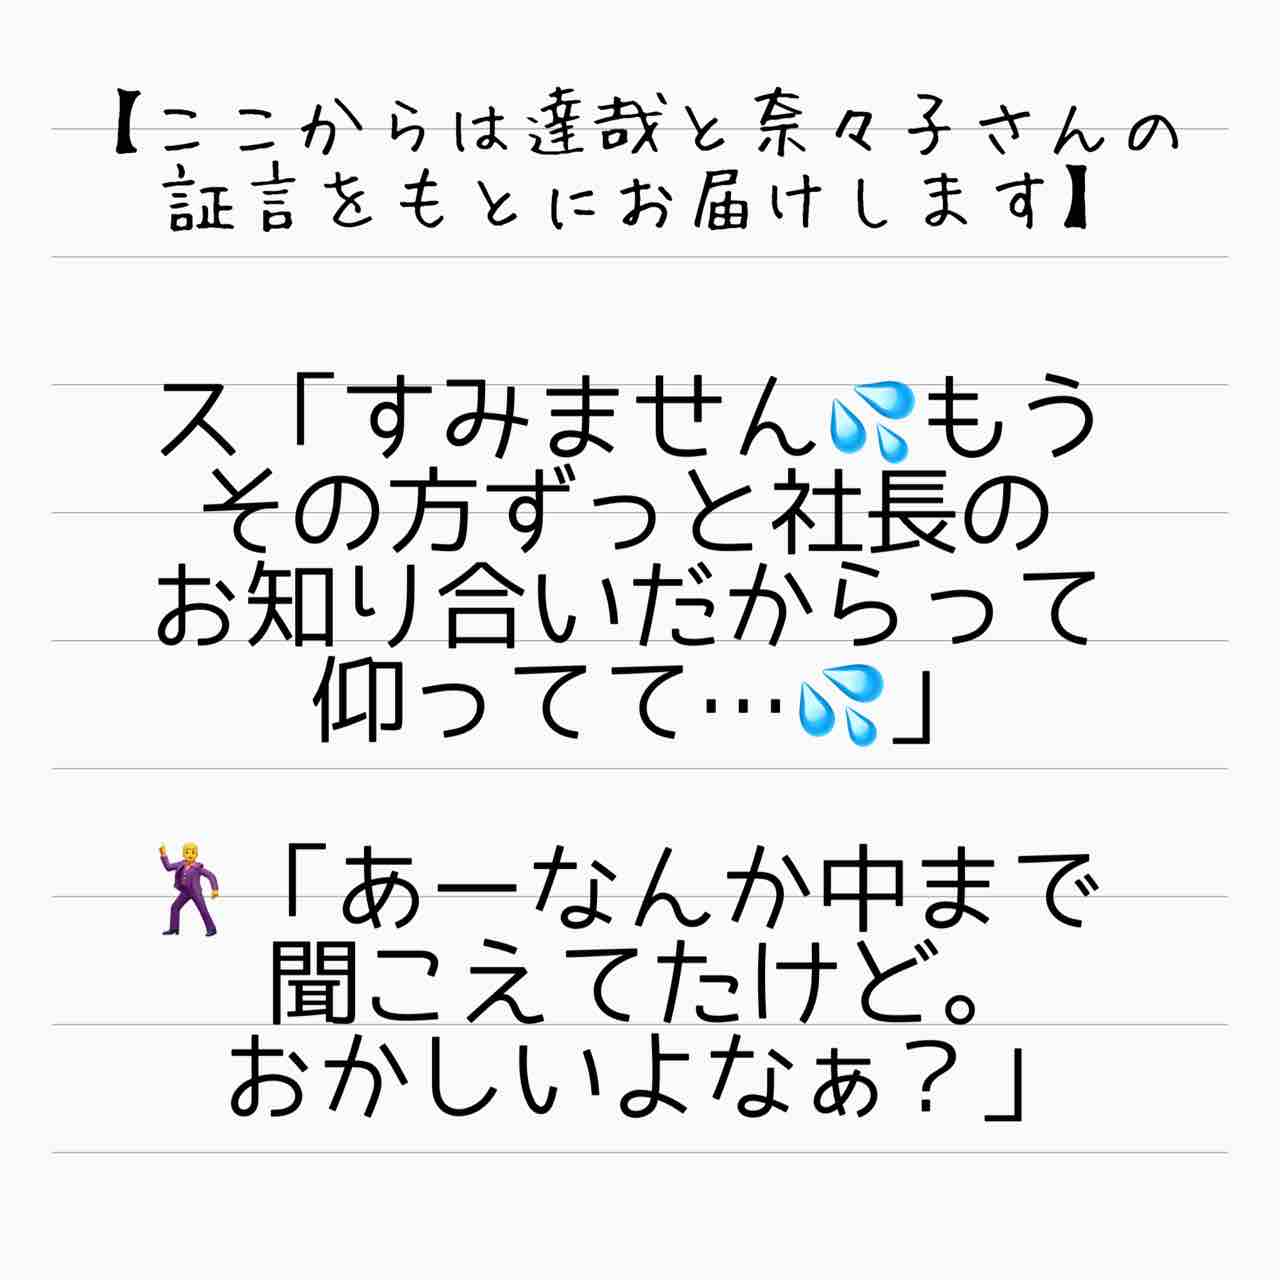 【ここからは達哉と奈々子さんの
証言をもとにお届けします】
ス「すみません💦もう
その方ずっと社長の
お知り合いだからって
仰ってて…💦」
🕺「あーなんか中まで
聞こえてたけど。
おかしいよなぁ？」